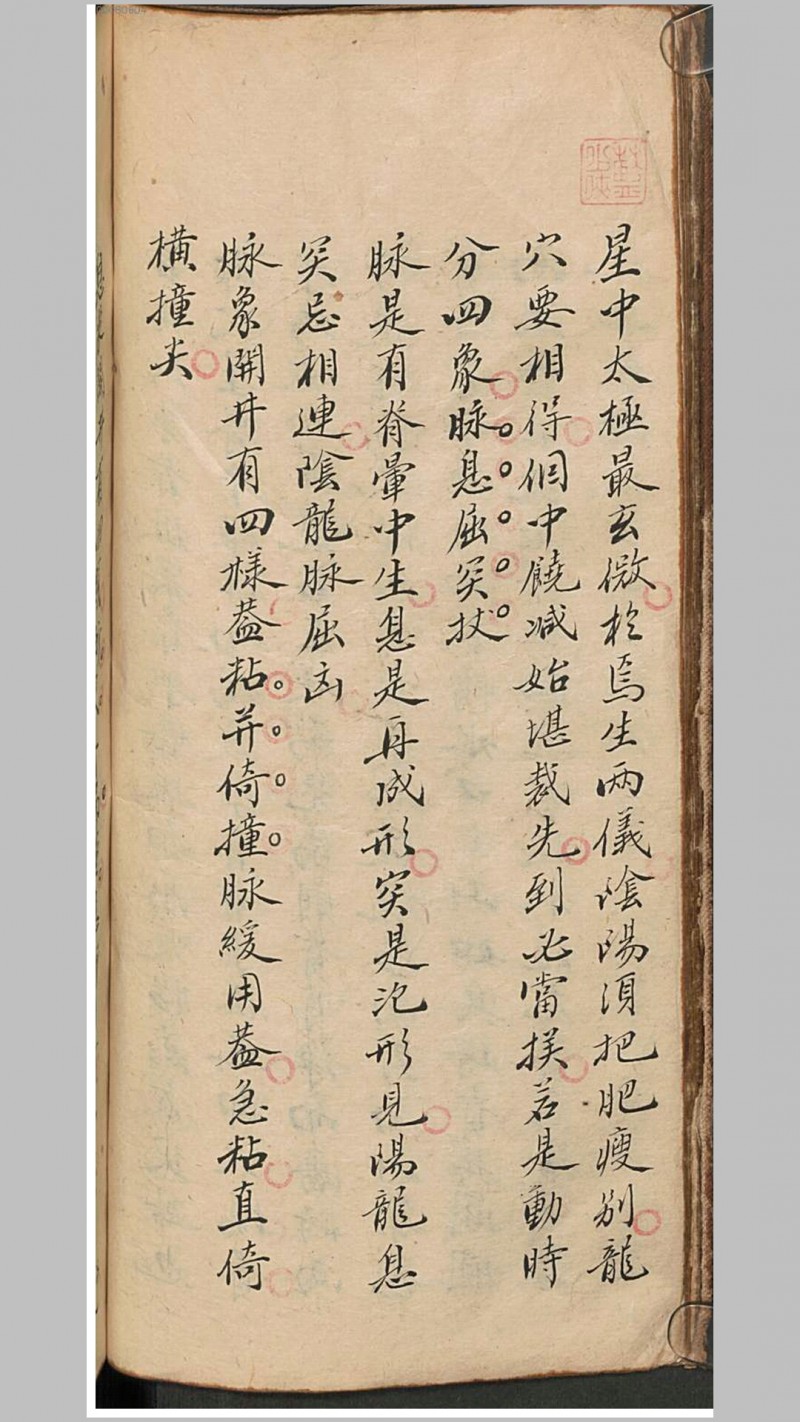 星中太極最玄微於焉生两儀陰陽須把肥瘦别龍
穴要相得個中饒减始堪裁先到必當挨若是動時
分四象脉息屈突扙
脉是有脊暈中生息是再成形突是泡形見陽龍息
突忌相連陰龍脉屈凶
脉象開井有四樣葢粘并倚撞脉緩用葢急粘直倚
橫撞尖